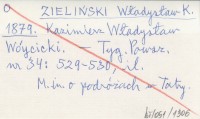 O ZIELIŃSKI Władysław K.
1879. Kazimierz Władysław
Wóycicki. — Tyg. Powsz.
nr 34: 529-530, il.
M.in. o podróżach — Tatry.